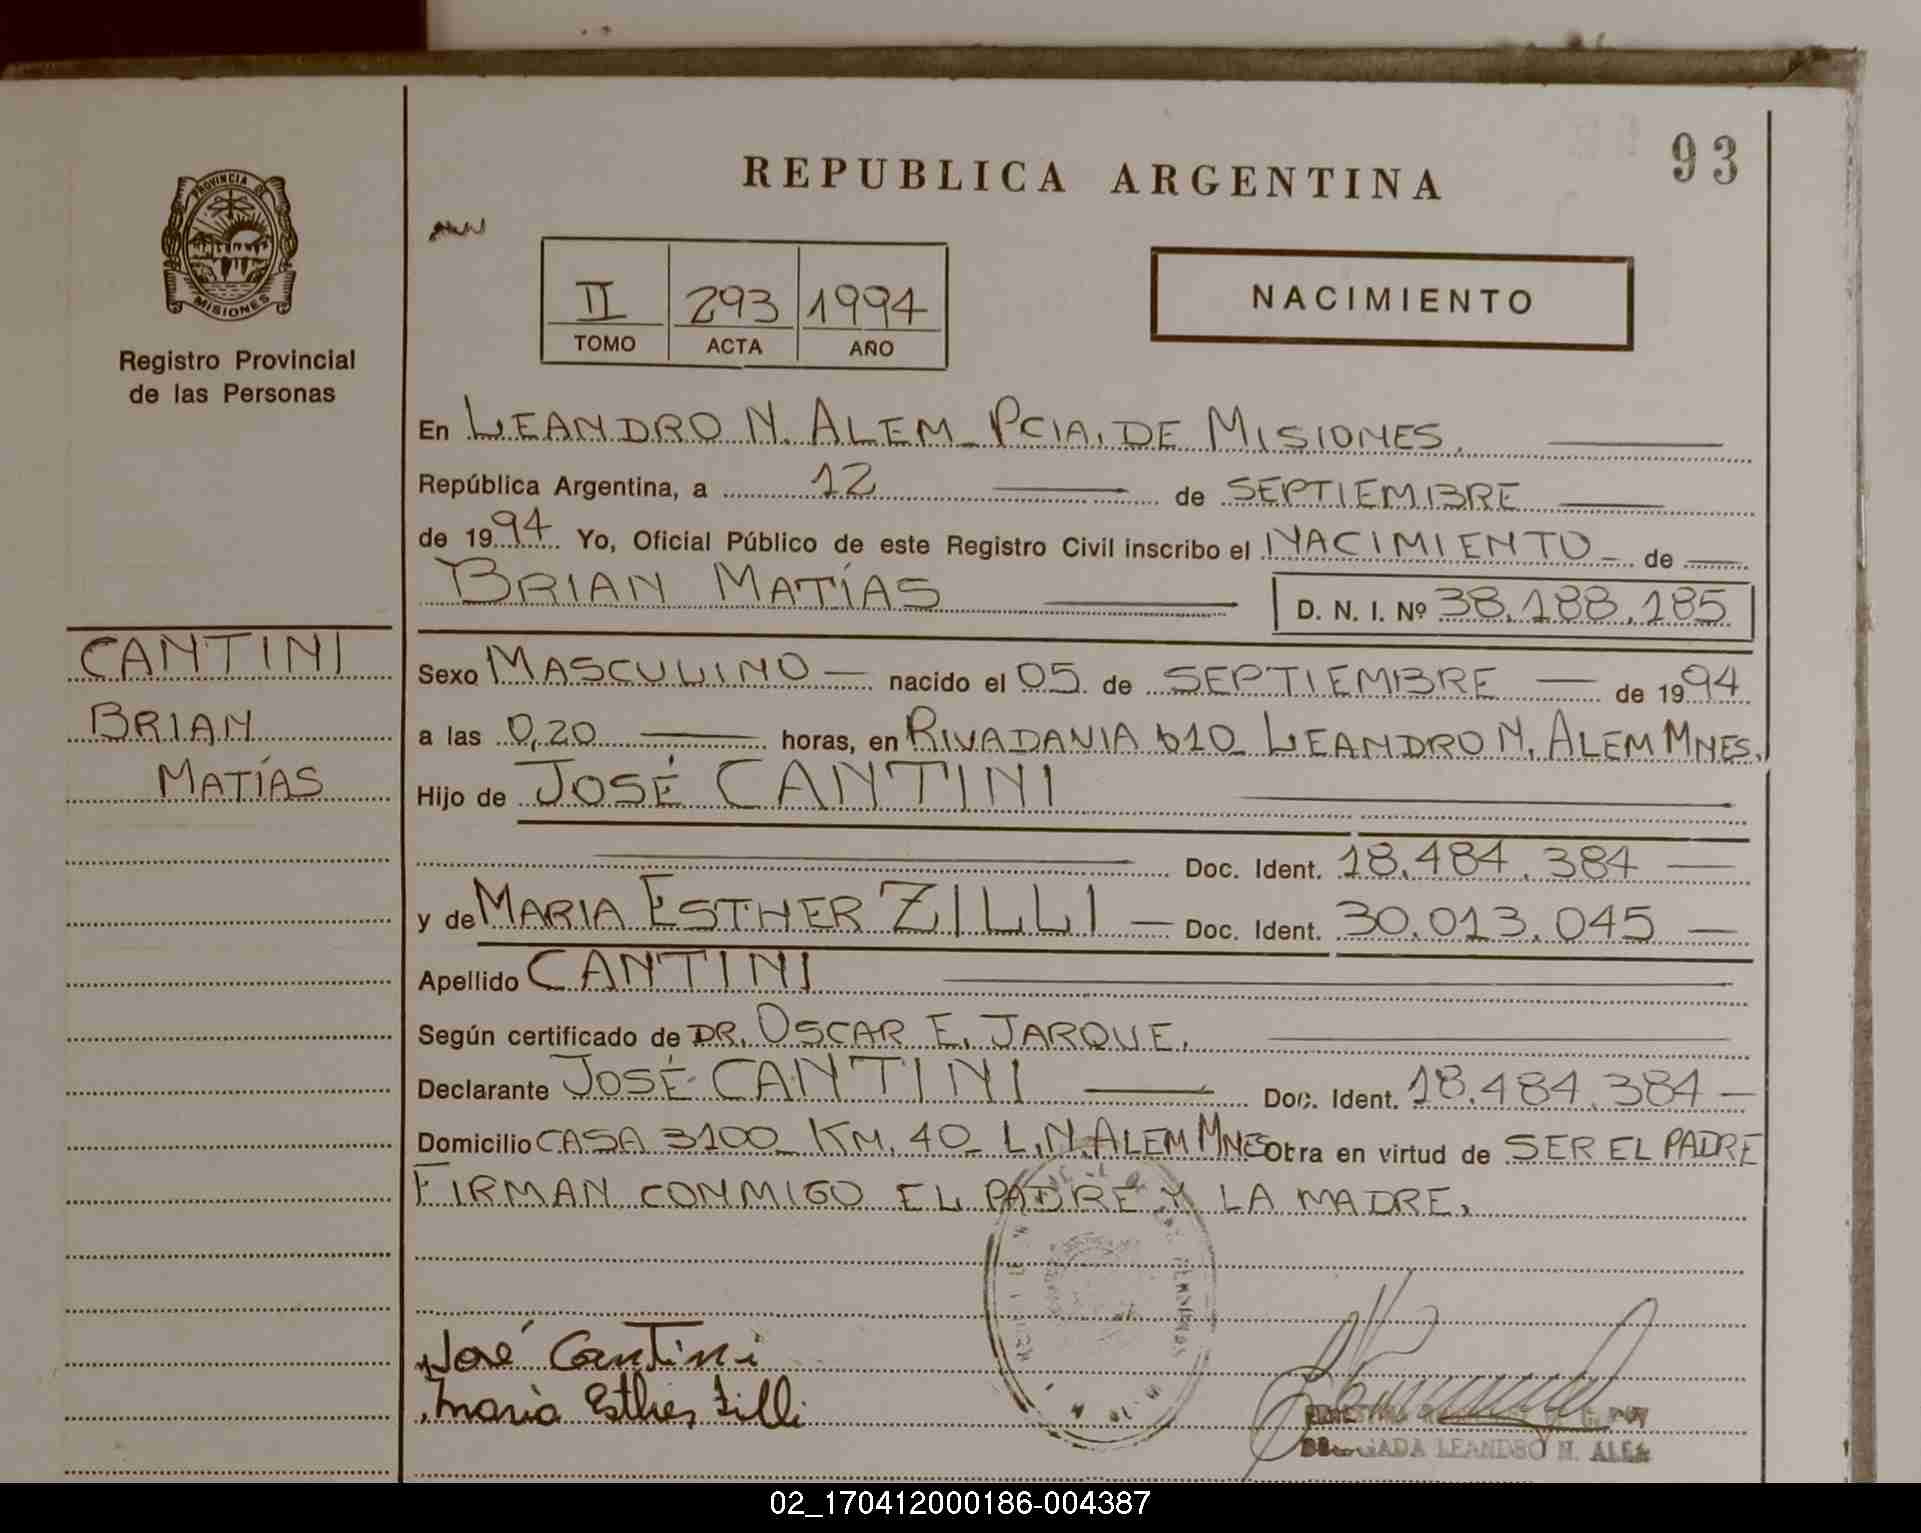 93
REPUBLICA ARGENTINA
PROVINCIA DE
MISIONES
Registro Provincial
de las Personas
II 293 1994
TOMO ACTA AÑO
NACIMIENTO
En LEANDRO N. ALEM_ PCIA. DE MISIONES.
República Argentina, a 12 de SEPTIEMBRE
de 1994 Yo, Oficial Público de este Registro Civil inscribo el NACIMIENTO de
BRIAN MATÍAS D. N. I. Nº 38.188.185
CANTINI
BRIAN
MATÍAS
Sexo MASCULINO nacido el 05 de SEPTIEMBRE de 1994
a las 0,20 horas, en RIVADAVIA 610_ LEANDRO N. ALEM MNES.
Hijo de JOSÉ CANTINI
Doc. Ident. 18.484.384
y de MARIA ESTHER ZILLI Doc. Ident. 30.013.045
Apellido CANTINI
Según certificado de DR. OSCAR E. JARQUE.
Declarante JOSÉ CANTINI Doc. Ident. 18.484.384
Domicilio CASA 3100_ KM. 40_ L.N.ALEM MNES Obra en virtud de SER EL PADRE
FIRMAN CONMIGO EL PADRE Y LA MADRE.
José Cantini
Maria Esther Zilli
LEANDRO N. ALEM
02_170412000186-004387